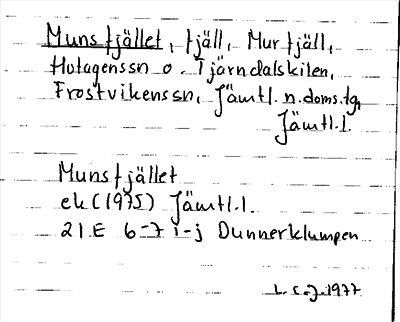 Munsfjället, fjäll, Murfjäll,
Hotagenssn o. Tjärndalskilen,
Frostvikenssn, Jämtl. n. doms.tg,
Jämtl.l.
Munsfjället
ek (1975) Jämtl.l.
21E 6-7 i-j Dunnerklumpen
L.C.J. 1977